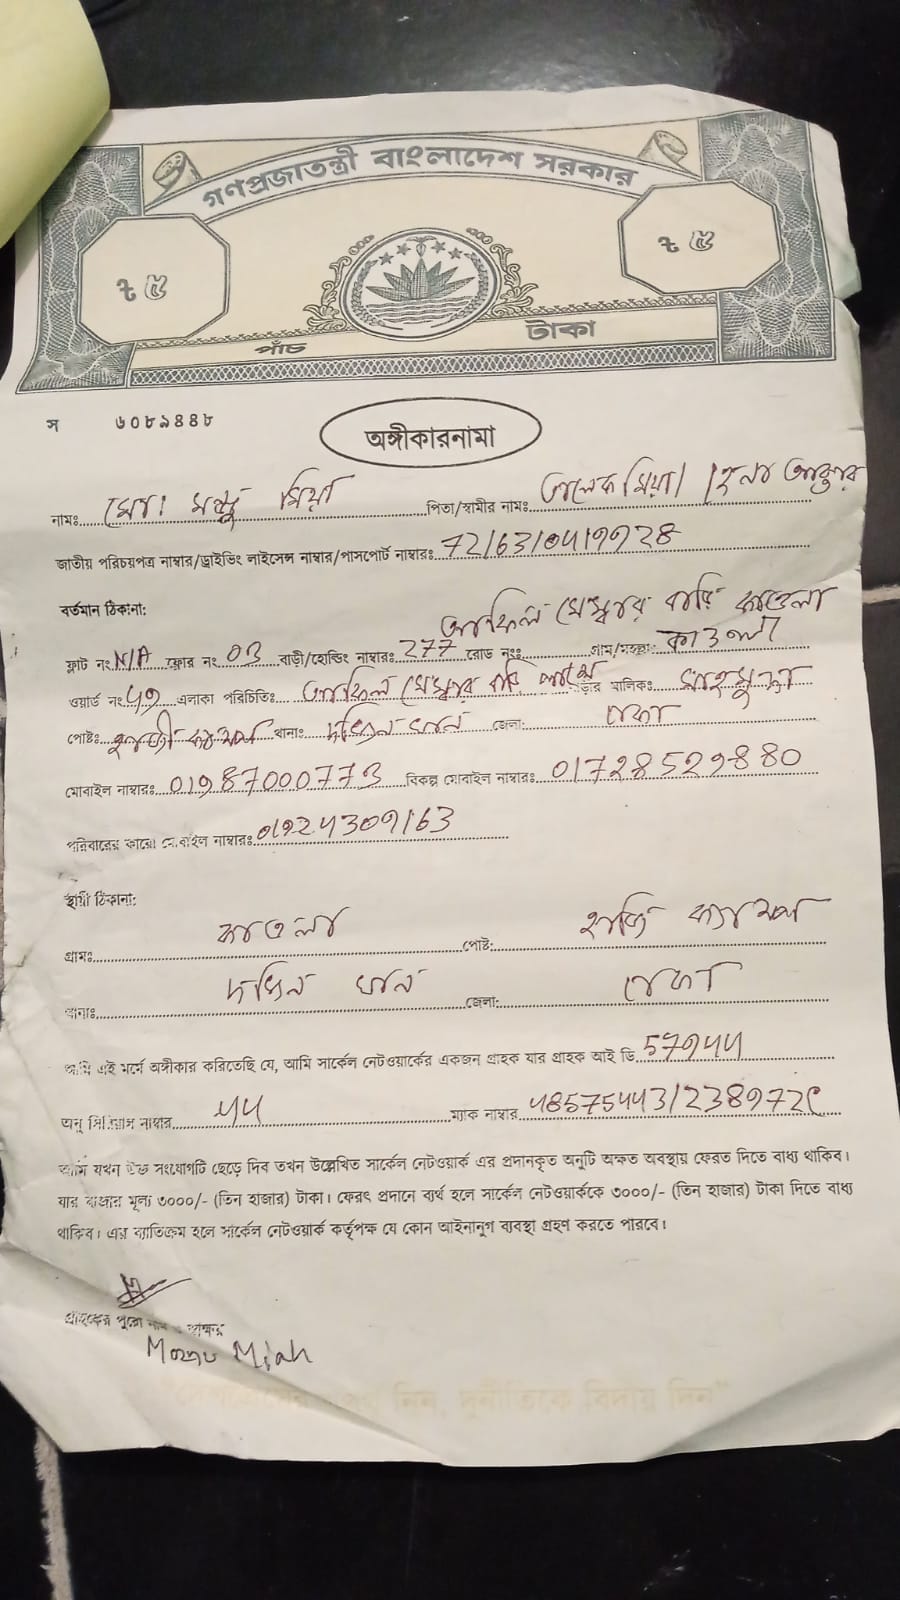 গণপ্রজাতন্ত্রী বাংলাদেশ সরকার
৳ ৫
৳ ৫
পাঁচ টাকা
স ৬০৮৯৪৪৮
অঙ্গীকারনামা
নামঃ মোঃ মঞ্জু মিয়া পিতা/স্বামীর নামঃ মিয়া। আক্তার
জাতীয় পরিচয়পত্র নাম্বার/ড্রাইভিং লাইসেন্স নাম্বার/পাসপোর্ট নাম্বারঃ
বর্তমান ঠিকানা: মেম্বার বাড়ি কাওলা
ফ্লাট নংঃ N/A ফ্লোর নংঃ 03 বাড়ী/হোল্ডিং নাম্বারঃ 277 রোড নংঃ গ্রাম/মহল্লাঃ কাওলা
ওয়ার্ড নংঃ এলাকা পরিচিতিঃ মেম্বার বাড়ি বাড়ির মালিকঃ
পোষ্টঃ থানাঃ দক্ষিন খান জেলাঃ ঢাকা
মোবাইল নাম্বারঃ 01987000773 বিকল্প মোবাইল নাম্বারঃ
পরিবারের কারো মোবাইল নাম্বারঃ
স্থায়ী ঠিকানা:
গ্রামঃ কাওলা পোষ্ট: হাজি ক্যাম্প
থানাঃ দক্ষিন খান জেলা: ঢাকা
আমি এই মর্মে অঙ্গীকার করিতেছি যে, আমি সার্কেল নেটওয়ার্কের একজন গ্রাহক যার গ্রাহক আই ডি
অনু সিরিয়াল নাম্বার ম্যাক নাম্বার
আমি যখন উক্ত সংযোগটি ছেড়ে দিব তখন উল্লেখিত সার্কেল নেটওয়ার্ক এর প্রদানকৃত অনুটি অক্ষত অবস্থায় ফেরত দিতে বাধ্য থাকিব।
যার বাজার মূল্য ৩০০০/- (তিন হাজার) টাকা। ফেরৎ প্রদানে ব্যর্থ হলে সার্কেল নেটওয়ার্ককে ৩০০০/- (তিন হাজার) টাকা দিতে বাধ্য
থাকিব। এর ব্যাতিক্রম হলে সার্কেল নেটওয়ার্ক কর্তৃপক্ষ যে কোন আইনানুগ ব্যবস্থা গ্রহণ করতে পারবে।
গ্রাহকের পুরো নাম ও স্বাক্ষর
Miah
নিন, দুর্নীতিকে বিদায় দিন"